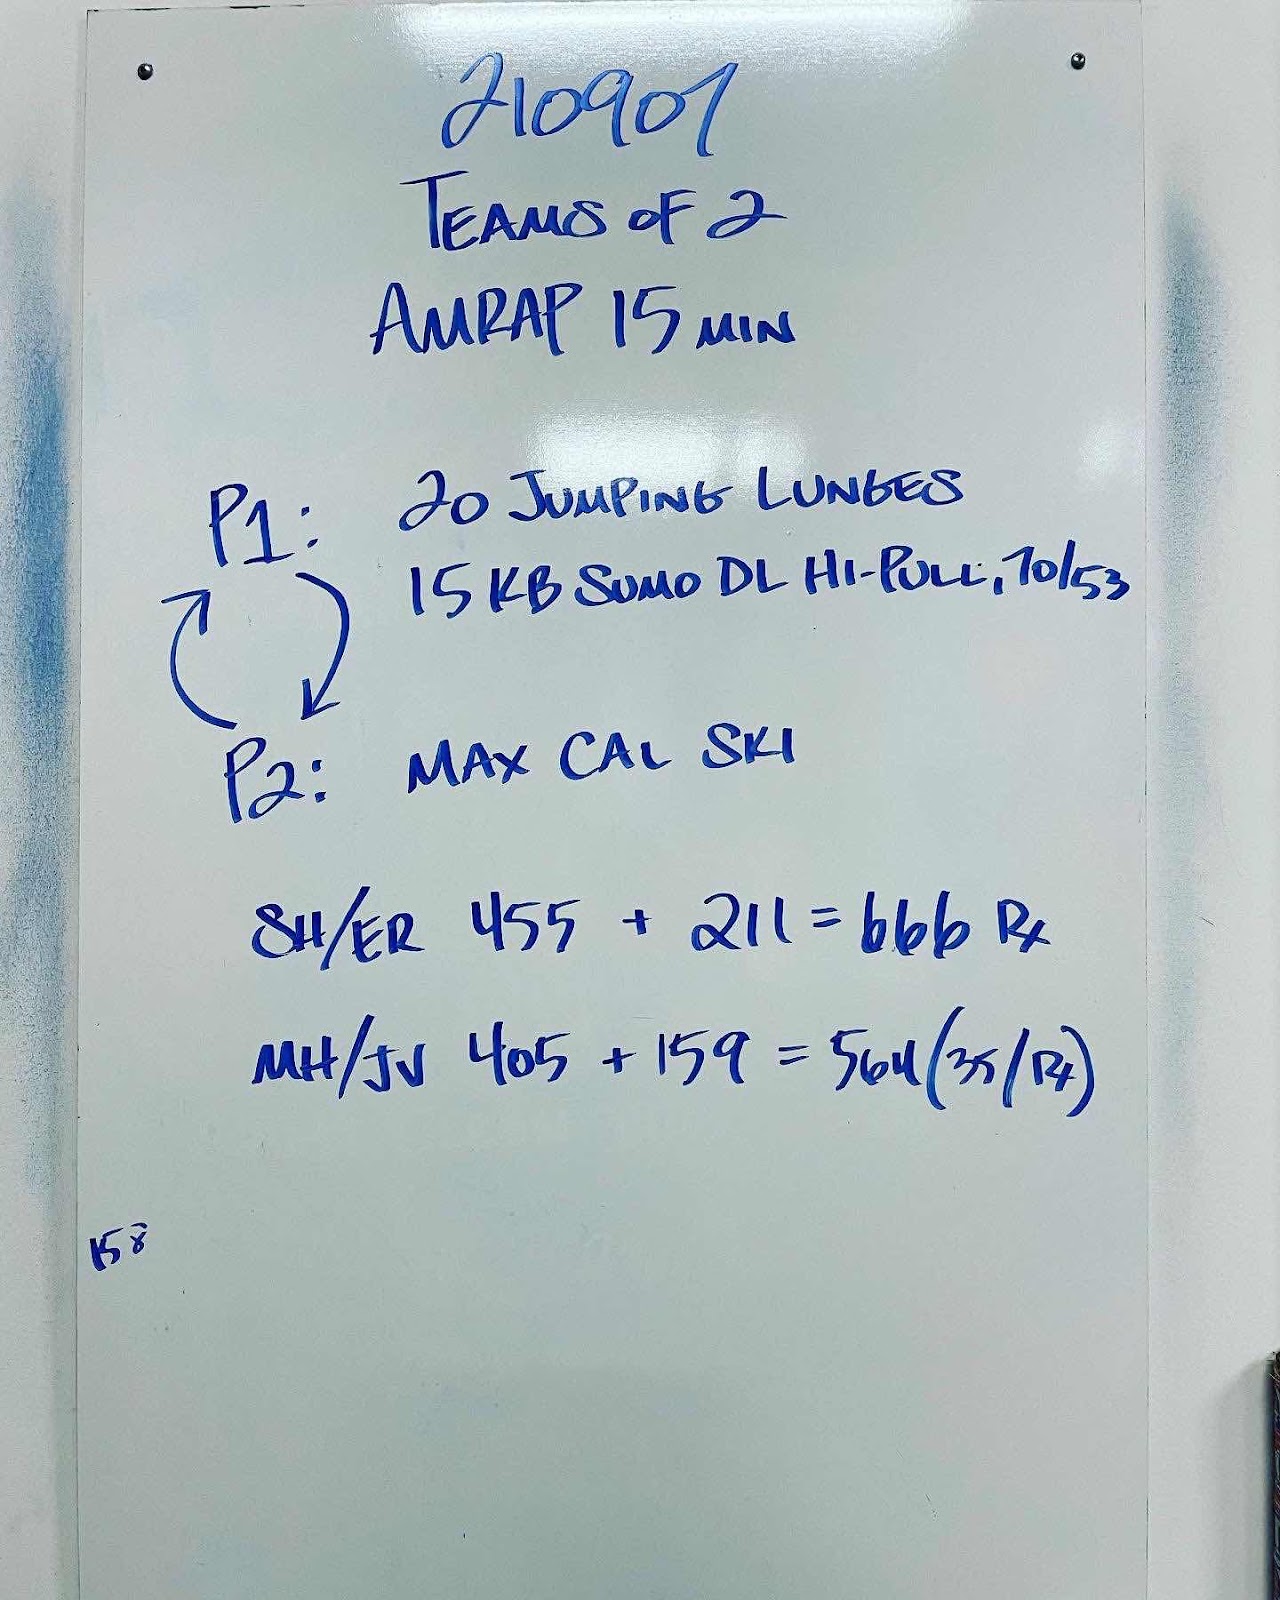 210907
TEAMS OF 2
AMRAP 15 MIN
P1: 20 JUMPING LUNGES
15 KB SUMO DL HI-PULL, 70/53
P2: MAX CAL SKI
SH/ER 455 + 211 = 666 Rx
MH/JV 405 + 159 = 564 (35/Rx)
158